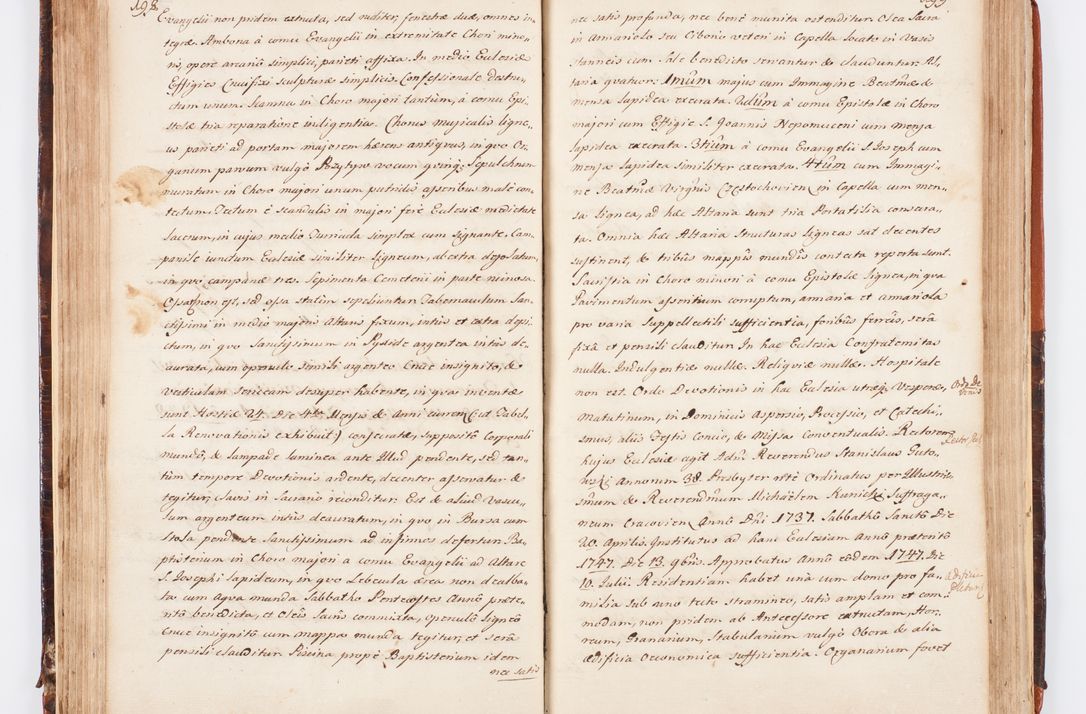 198.
Evangelii non pridem extructa, sed rudites, fenestræ duæ, omnes in„
tegræ. Ambona à cornu Evangelii in extremitate Chori mino„
ris, opere arcario simplici, parieti affixa. In medio Ecclesiæ
Effigies Crucifixi sculpturæ simplicis. Confessionale destru„
ctum unum. Scamna in Choro majori tantum, à cornu Epi„
stolæ tria reparatione indigentia. Chorus musicalis ligne„
us parieti ad portam majorem hærens antiquus, in quo Or„
ganum parvum vulgò Pozytyw vocum quinq; Sepulchrum
muratum in Choro majori unum putridis asseribus malè con„
tectum. Tectum è scandulis in majori ferè Ecclesiæ medietate
lacerum, in cujus medio Turricula simplex cum signante. Cam„
panile junctum Ecclesiæ similiter ligneum, ab extra depositatum,
in quo campanæ tres. Sepimenta Cæmeterii in parte ruinosa.
Ossar̃ non est, sed ossa statim sepeliuntur. Tabernaculum San„
ctissimi in medio majoris Altaris fixum, intus et extra depi„
ctum, in quo Sanctissimum in Pyxide argentea intus de„
aurata, cum operculo simili argenteo Cruce insignito, &
vesticulam sericeam desuper habente, in qua inventæ
sunt Hostiæ 24. Die 4ta Mensis & Anni curren: (ut Tabel„
la Renovationis exhibuit) consecratæ, supposito Corporali
mundo, & lampade laminea ante Illud pendente, sed tan„
tum tempore Devotionis ardente, decenter asservatur &
tegitur; clavis in Sacrario reconditur. Est & aliud vascu„
lum argenteum intus deauratum, in quo in Bursa cum
Stola pendente Sanctissimum ad infirmos defertur. Ba„
ptisterium in Choro majori a cornu Evangelii ad Altare
S. Josephi lapideum, in quo Lebecula ærea non dealba„
ta cum Aqua munda Sabbatho Pentecostes Anno præte„
rito benedicta, et Oleis Sacris commixta, operculo ligneo
Cruce insignito cum mappa munda tegitur, et serâ
pensili clauditur. Piscina propè Baptisterium idem
nec satis
nec satis profunda, nec benè munita ostenditur. Olea Sacra
in Armariolo seu Ciborio veteri in Capella locato in Vasis
stanneis cum Sale benedito servantur & clauduntur. Al„
taria quatuor: 1mum majus cum Immagine Beatmæ &
mensa lapidea execrata. 2dum à cornu Epistolæ in Choro
majori cum Effigie S. Joannis Nepomuceni cum mensa
lapidea execrata. 3tium à cornu Evangelii S. Joseph cum
mensa lapidea similiter execrata. 4tum cum Immagi„
ne Beatmæ Virginis Częstochovien: in Capella cum men„
sa lignea, ad hæc Altaria sunt tria Portatilia consecra„
ta. Omnia hæc Altaria structuras ligneas sat decentes
sustinent, & tribus mappis mundis contecta reperta sunt.
Sacristia in Choro minori à cornu Epistolæ lignea, in qua
Pavimentum asseritium corruptum, armaria et armariola
pro varia Suppellectili sufficientia, foribus ferreis, serâ
fixâ et pensili clauditur. In hac Ecclesia Confraternitas
nulla. Indulgentiæ nullæ. Religuiæ nullæ. Hospitale
non est. Ordo Devotionis in hac Ecclesia utræq; Vesperæ,
Matutinum, in Dominicis Aspersio, Processio, et Catechi„
smus, aliis Festis Concio, & Missa Conventualis. Rectorem
hujus Ecclesiæ agit Adm̃ Reverendus Stanislaus Guto„
wski Annorum 38. Presbyter ritè Ordinatus per Illustris„
simum & Reverendmum Michaëlem Kunicki Suffraga„
neum Cracovien: Anno Dñi 1737. Sabbatho Sancto Die
20. Aprilis. Institutus ad hanc Ecclesiam Anno præterito
1747. Die 13. 9bris. Approbatus Anno eôdem 1747. Die
10. Julii. Residentiam habet unà cum domo pro fa„
milia sub uno tecto stramineo, satis amplam et com„
modam, non pridem ab Antecessore extructam, Hor„
reum, Granarium, Stabularium vulgò Obora & alia
ædificia Œconomica sufficientia. Organarium fovet
Ordo De
votio:
Rector Ecl: